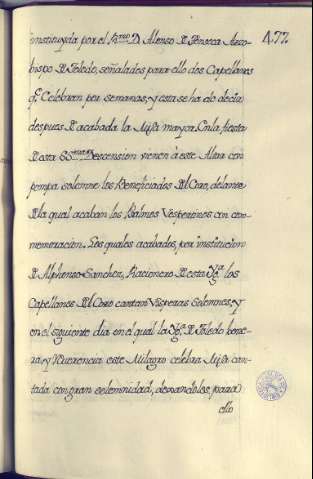 instituyda por el Ill.mo D. Alonso de Fonseca Arzo-
477
bispo de Toledo, señalados para ello dos Capellanes
q.e Celebran por semanas; y esta se ha de decir
despues de acabada la Missa mayor. En la fiesta
de esta Descension vienen à este Altar con
pompa solemne los Beneficiados del Coro, delante
de la qual acaban los Psalmos Vespertinos con con-
memoracion. Los quales acabados, por institucion
de Alphonso Sanchez, Racionero de esta Yg.a los
Capellanes del Coro cantan Visperas solemnes; y
en el siguiente dia en el qual la Yg.a de Toledo honr-
ra, y Reverencia este Milagro celebra Missa can-
tada con gran solemnidad, dexandoles para
ello